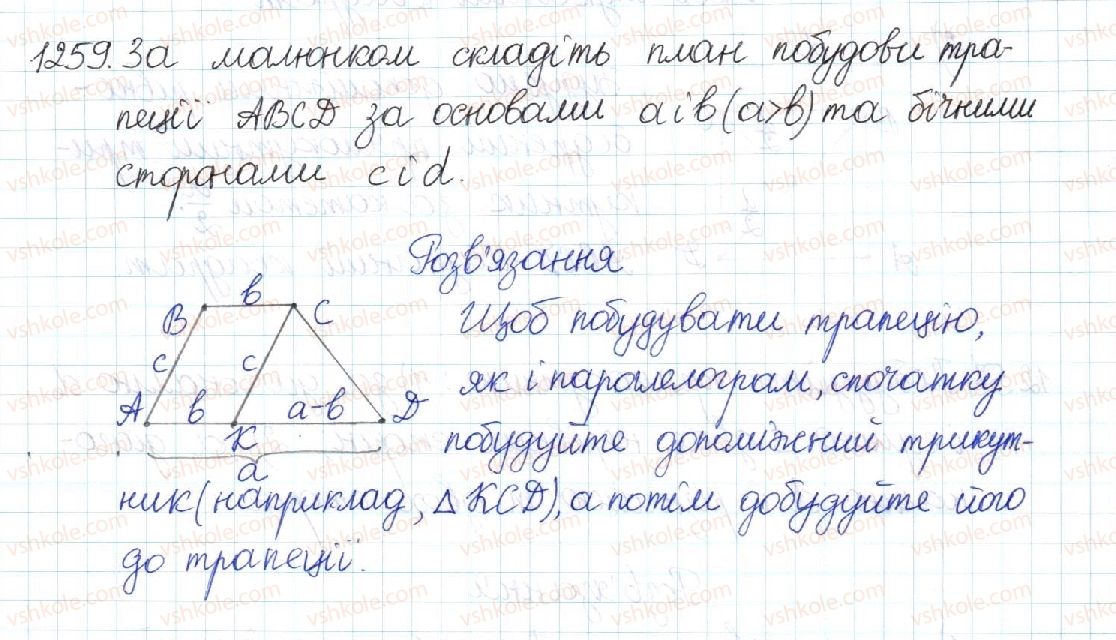 1259. За малюнком складіть план побудови тра-
пеції ABCD за основами a і b (a>b) та бічними
сторонами c і d.
Розв'язання
b
B C
c c
A b a-b D
K
a
Щоб побудувати трапецію,
як і паралелограм, спочатку
побудуйте допоміжний трикут-
ник (наприклад, △KCD), а потім добудуйте його
до трапеції.
vshkole.com